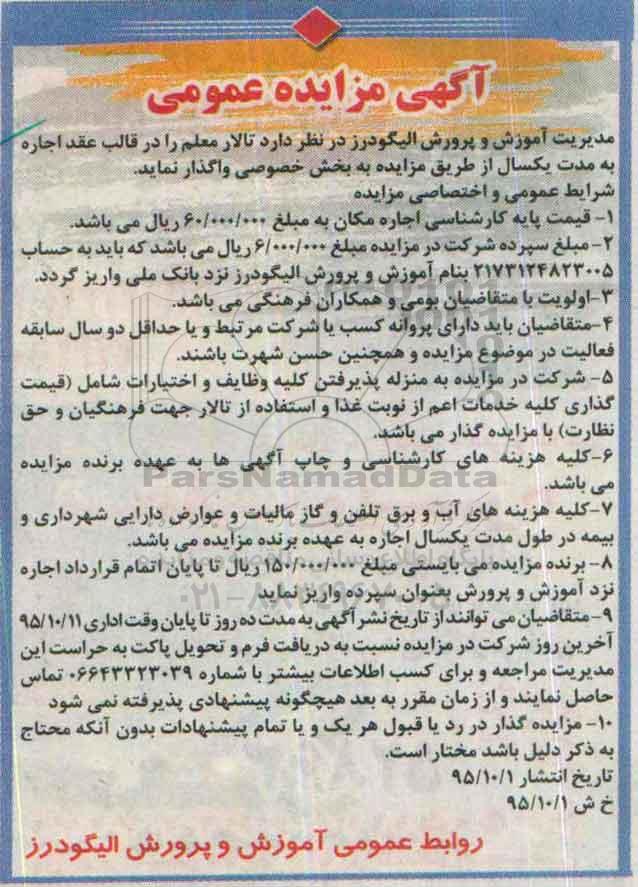 آگهی مزایده عمومی
مدیریت آموزش و پرورش الیگودرز در نظر دارد تالار معلم را در قالب عقد اجاره
به مدت یکسال از طریق مزایده به بخش خصوصی واگذار نماید.
شرایط عمومی و اختصاصی مزایده
۱- قیمت پایه کارشناسی اجاره مکان به مبلغ ۶۰/۰۰۰/۰۰۰ ریال می باشد.
۲- مبلغ سپرده شرکت در مزایده مبلغ ۶/۰۰۰/۰۰۰ ریال می باشد که باید به حساب
۲۱۷۳۱۲۴۸۲۳۰۰۵ بنام آموزش و پرورش الیگودرز نزد بانک ملی واریز گردد.
۳-اولویت با متقاضیان بومی و همکاران فرهنگی می باشد.
۴-متقاضیان باید دارای پروانه کسب یا شرکت مرتبط و یا حداقل دو سال سابقه
فعالیت در موضوع مزایده و همچنین حسن شهرت باشند.
۵- شرکت در مزایده به منزله پذیرفتن کلیه وظایف و اختیارات شامل (قیمت
گذاری کلیه خدمات اعم از نوبت غذا و استفاده از تالار جهت فرهنگیان و حق
نظارت) با مزایده گذار می باشد.
۶-کلیه هزینه های کارشناسی و چاپ آگهی ها به عهده برنده مزایده
می باشد.
ParsNamadData
۷-کلیه هزینه های آب و برق تلفن و گاز مالیات و عوارض دارایی شهرداری و
بیمه در طول مدت یکسال اجاره به عهده برنده مزایده می باشد.
۸- برنده مزایده می بایستی مبلغ ۱۵۰/۰۰۰/۰۰۰ ریال تا پایان اتمام قرارداد اجاره
نزد آموزش و پرورش بعنوان سپرده واریز نماید
۹-متقاضیان می توانند از تاریخ نشر آگهی به مدت ده روز تا پایان وقت اداری ۹۵/۱۰/۱۱
آخرین روز شرکت در مزایده نسبت به دریافت فرم و تحویل پاکت به حراست این
مدیریت مراجعه و برای کسب اطلاعات بیشتر با شماره ۰۶۶۴۳۳۲۳۰۳۹ تماس
حاصل نمایند و از زمان مقرر به بعد هیچگونه پیشنهادی پذیرفته نمی شود
۱۰- مزایده گذار در رد یا قبول هر یک و یا تمام پیشنهادات بدون آنکه محتاج
به ذکر دلیل باشد مختار است.
تاریخ انتشار ۹۵/۱۰/۱
خ ش ۹۵/۱۰/۱
روابط عمومی آموزش و پرورش الیگودرز